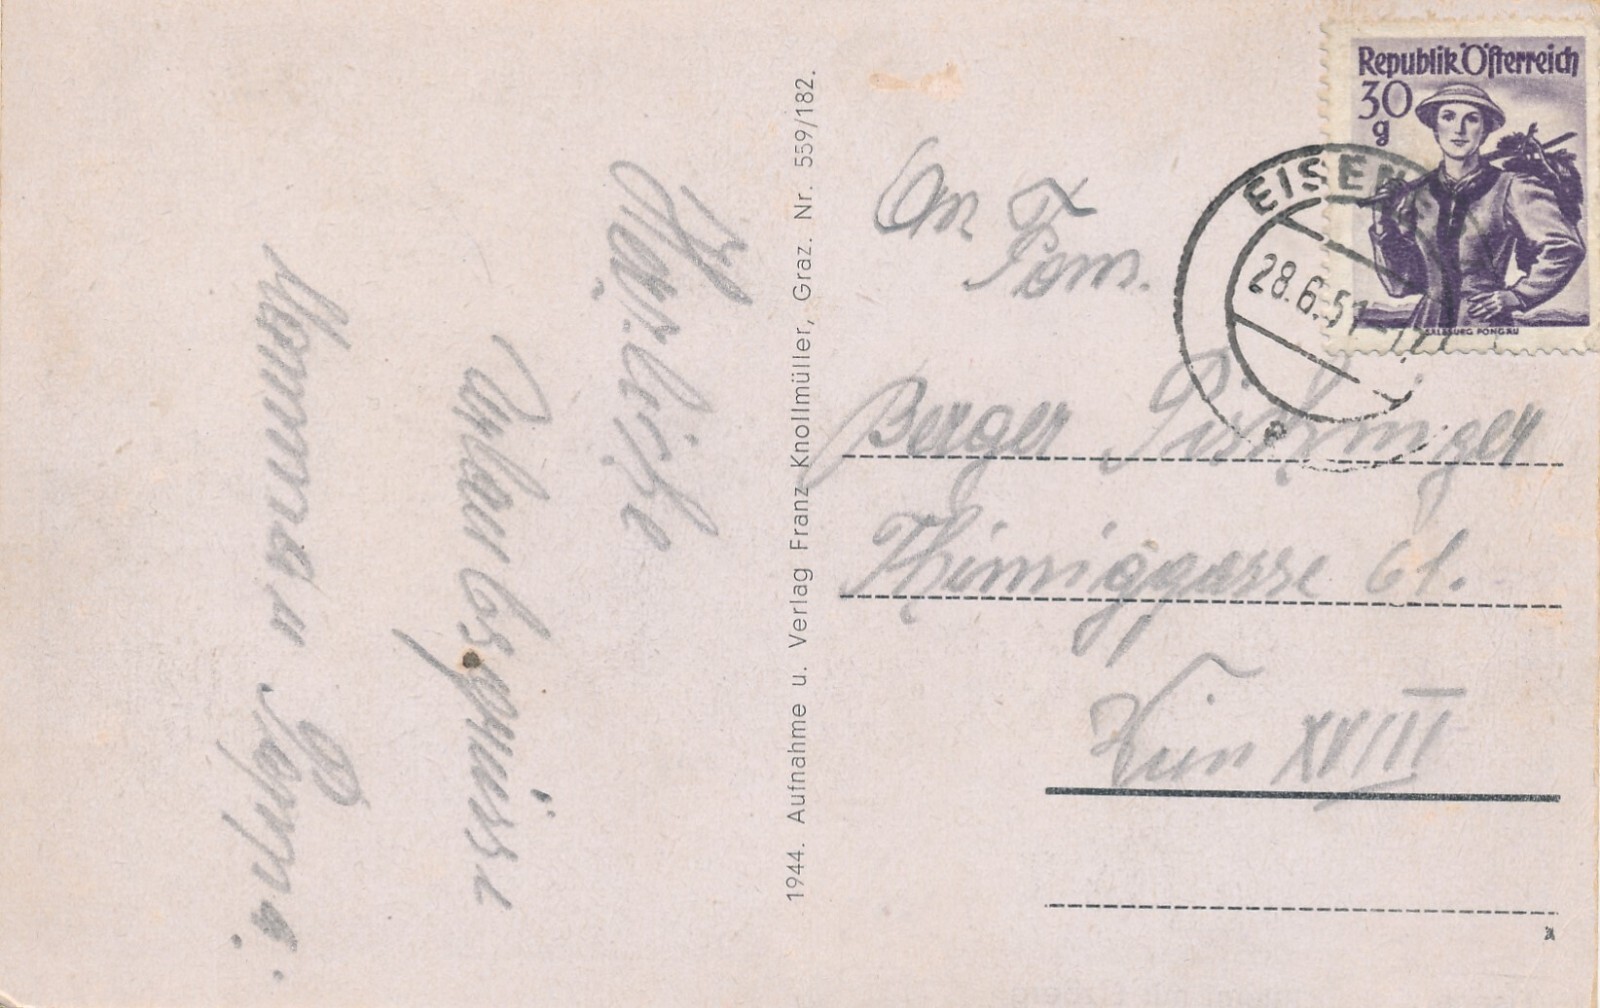 Herzliche
Urlaubsgrüsse
1944. Aufnahme u. Verlag Franz Knollmüller, Graz. Nr. 559/182.
Republik Österreich
30
g
SALZBURG PONGAU
EISEN
28.6.51
a
An
Fam.
Berger
Thimiggasse 61.
Wien XVIII